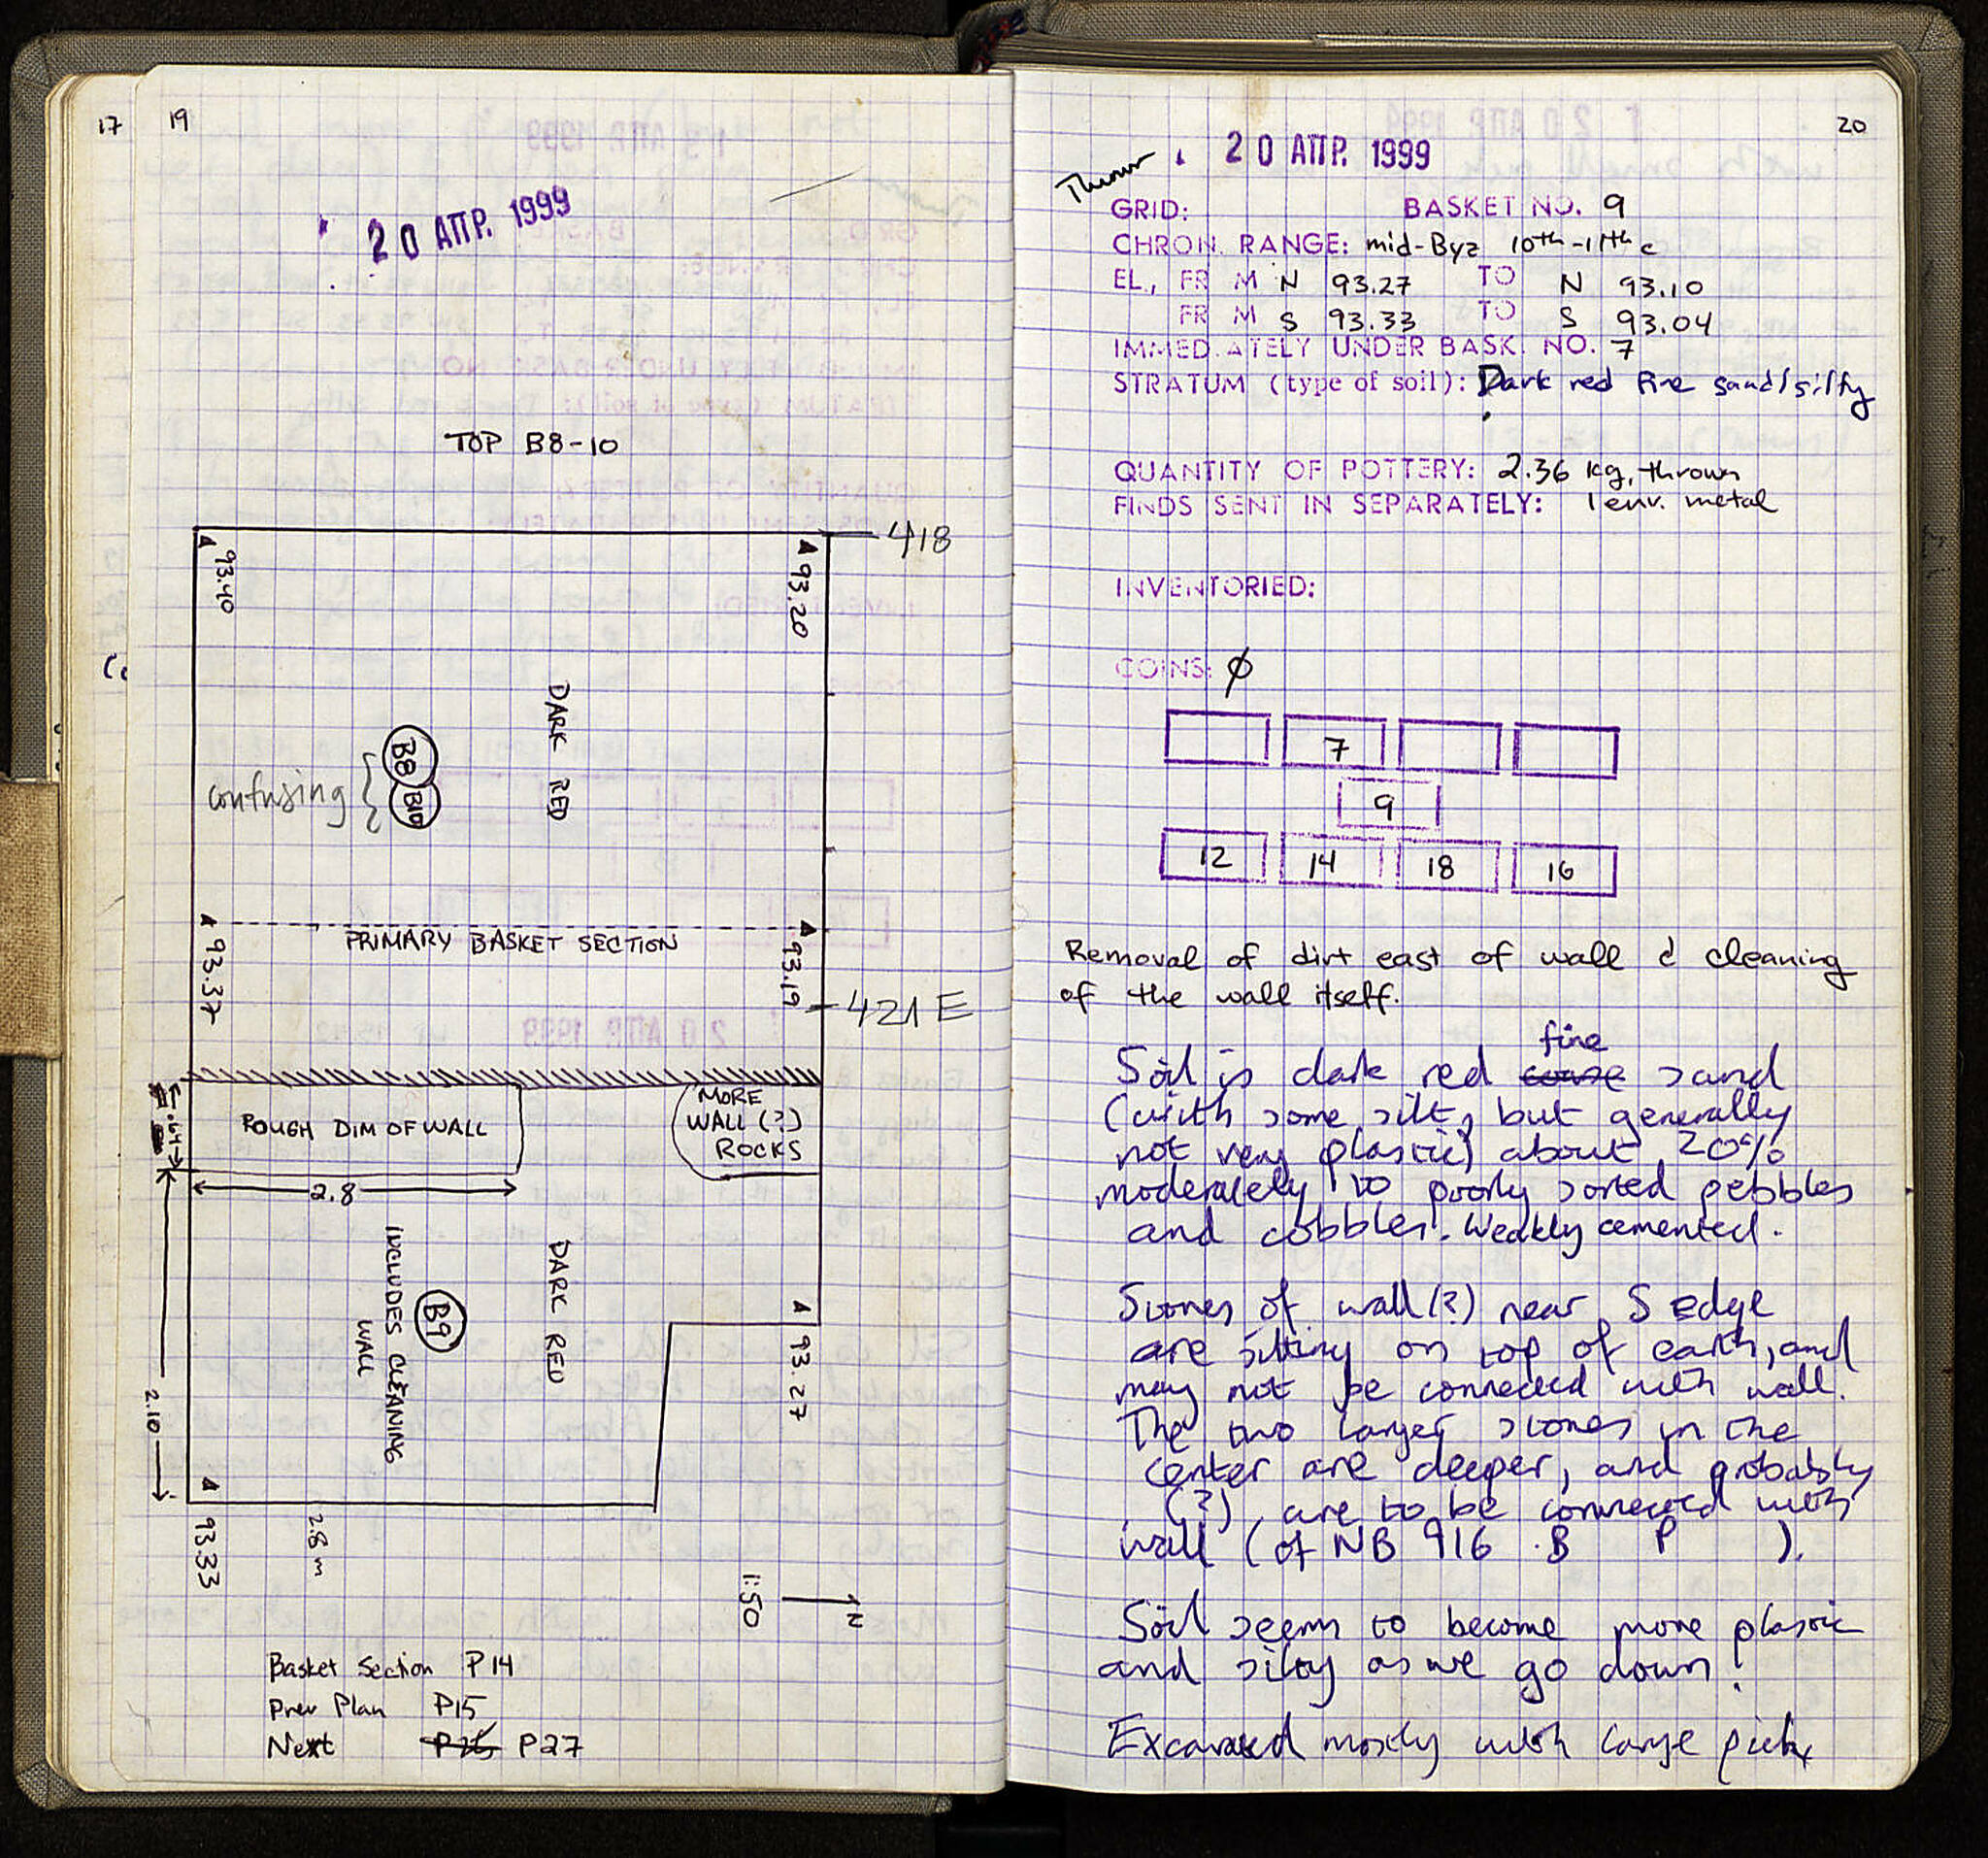 17
19
20 ΑΠΡ. 1999
TOP B8-10
418
93.40
93.20
DARK RED
B8
B10
confusing
PRIMARY BASKET SECTION
93.37
93.19
421 E
.64
ROUGH DIM OF WALL
MORE
WALL (?)
ROCKS
2.8
DARK RED
B9
INCLUDES CLEANING
WALL
2.10
93.27
93.33
2.8 m
1:50
N
Basket Section P14
Prev Plan P15
Next P26 P27
20
20 ΑΠΡ. 1999
Thrown
GRID: BASKET NO. 9
CHRON. RANGE: mid-Byz 10th-11th c
EL., FR M N 93.27 TO N 93.10
FR M S 93.33 TO S 93.04
IMMED.ATELY UNDER BASK. NO. 7
STRATUM (type of soil): Dark red fine sand/silty
QUANTITY OF POTTERY: 2.36 kg, thrown
FINDS SENT IN SEPARATELY: 1 env. metal
INVENTORIED:
COINS: ∅
7
9
12 14 18 16
Removal of dirt east of wall & cleaning
of the wall itself.
fine
Soil is dark red coarse sand
(with some silt, but generally
not very plastic) about 20%
moderately to poorly sorted pebbles
and cobbles. Weakly cemented.
Stones of wall (?) near S edge
are sitting on top of earth, and
may not be connected with wall.
The two larger stones in the
center are deeper, and probably
(?) are to be connected with
wall (of NB 916 B P ).
Soil seems to become more plastic
and silty as we go down!
Excavated mostly with large pick,